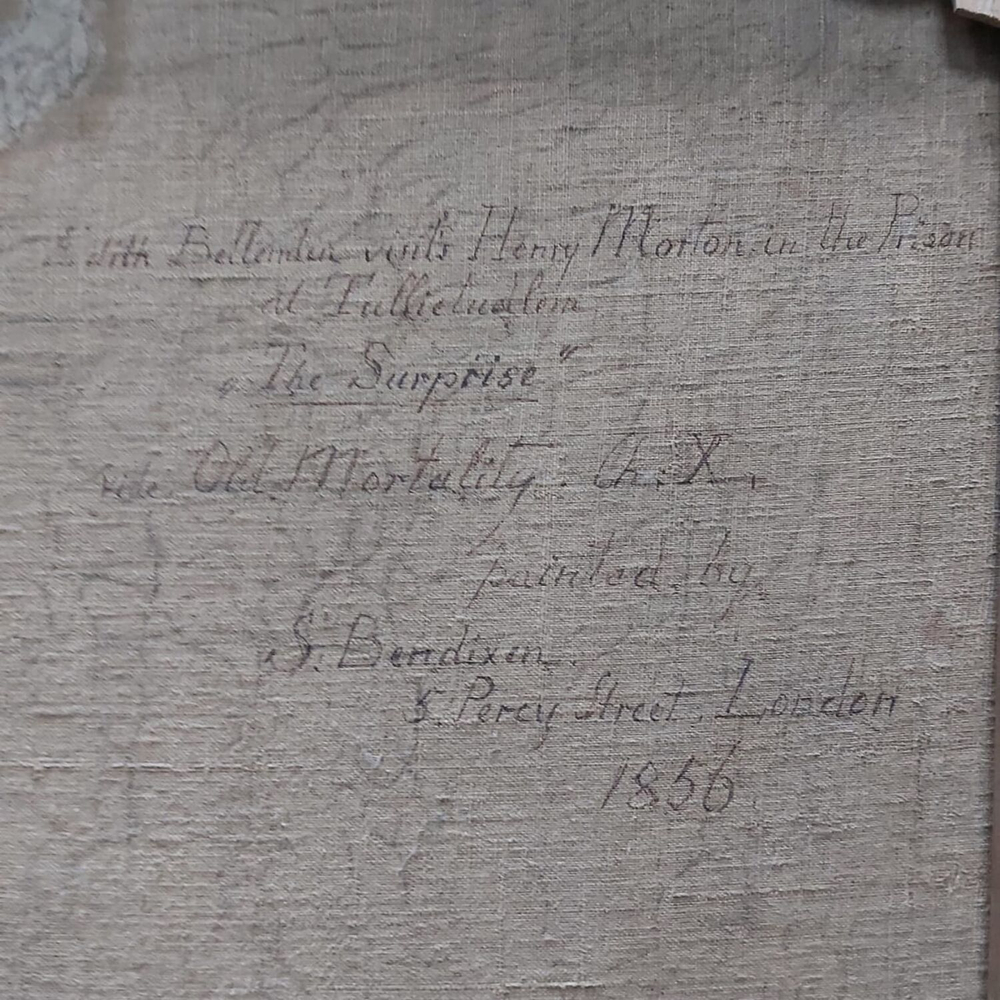 Edith Bellenden visits Henry Morton in the Prison
at Tullietudlem
„The Surprise"
vide Old Mortality. Ch. X.
painted by
S. Bendixen.
5. Percy Street. London
1856